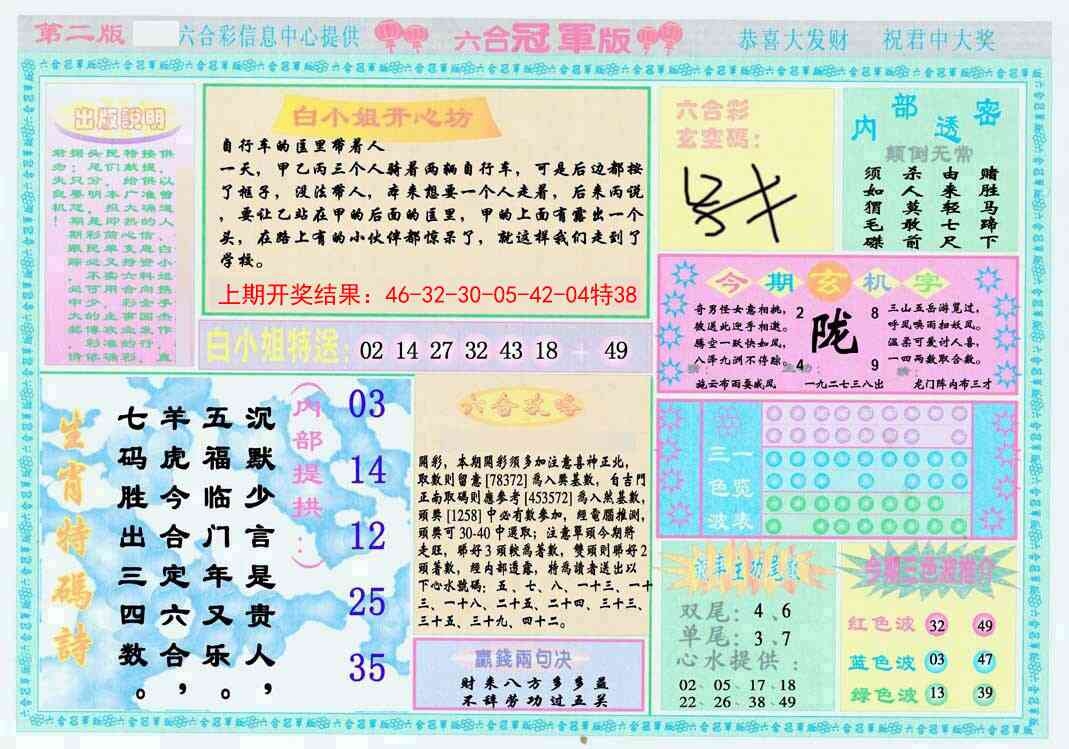 第二版
六合彩信息中心提供
六合冠軍版
恭喜大发财
祝君中大奖
出版説明
白小姐开心坊
自行车的匡里带着人
一天，甲乙丙三个人骑着两辆自行车，可是后边都按
了框子，没法带人，本来想要一个人走着，后来丙说
，要让乙站在甲的后面的匡里，甲的上面有露出一个
头，在路上有的小伙伴都惊呆了，就这样我们走到了
学校。
上期开奖结果：46-32-30-05-42-04特38
白小姐特送：
02 14 27 32 43 18 + 49
六合彩
玄空碼：
内部透密
颠倒无常
须如猬毛磔
杀人莫敢前
由来轻七尺
赌胜马蹄下
今期玄机字
奇男怪女意相挑，
彼送此迎手相邀。
腾空一跃快如风，
八洋九洲不停踪。
施云布雨耍威风
2
8
陇
4
9
一九二七三八出
三山五岳游览过，
呼风唤雨扣妖风。
温柔可爱讨人喜，
一四两数取合数。
龙门阵内布三才
生肖特碼詩
七码胜出三四数。
羊虎今合定六合，
五福临门年又乐。
沉默少言是贵人，
（内部提拱：）
03
14
12
25
35
六合攻略
開彩，本期開彩須多加注意喜神正北，
取數則留意[78372]爲入奬基數，自吉門
正南取碼則應參考[453572]爲入然基數，
頭奬[1258]中必有數參加，經電腦推測，
頭奬可30-40中選取；注意單頭今期將
走旺，睇好3頭較爲著數，雙頭則睇好2
頭著數，經内部透露，特爲讀者送出以
下心水號碼：五、七、八、一十三、一十
三、一十八、二十五、二十四、三十三、
三十五、三十九、四十二。
贏錢兩句决
财来八方多多益
不辞劳功过五关
三色波
一览表
双尾：4、6
单尾：3、7
心水提供：
02、05、17、18
22、26、38、49
今期三色波推介
红色波 32 49
蓝色波 03 47
绿色波 13 39